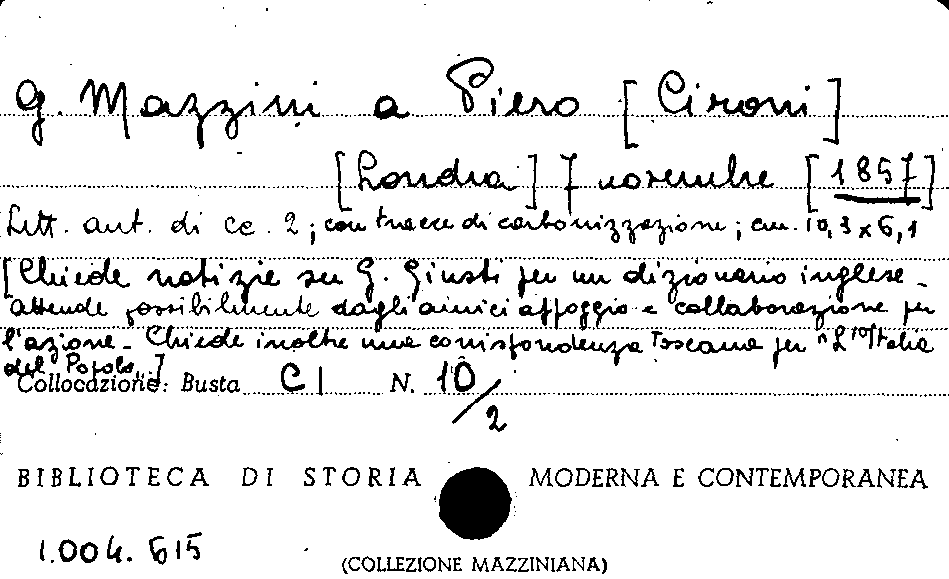 G. Mazzini a Piero [Cironi]
[Londra] 7 novembre [1857]
Lett. aut. di cc. 2; con tracce di carbonizzazione; cm. 10,3 x 6,1
[Chiede notizie su G. Giusti per un dizionario inglese -
attende possibilmente dagli amici appoggio e collaborazione per
l'azione - Chiede inoltre una corrispondenza Toscana per "L'Italia
del Popolo"]
Collocazione: Busta C I N. 10/2
BIBLIOTECA DI STORIA MODERNA E CONTEMPORANEA
1.004.615
(COLLEZIONE MAZZINIANA)